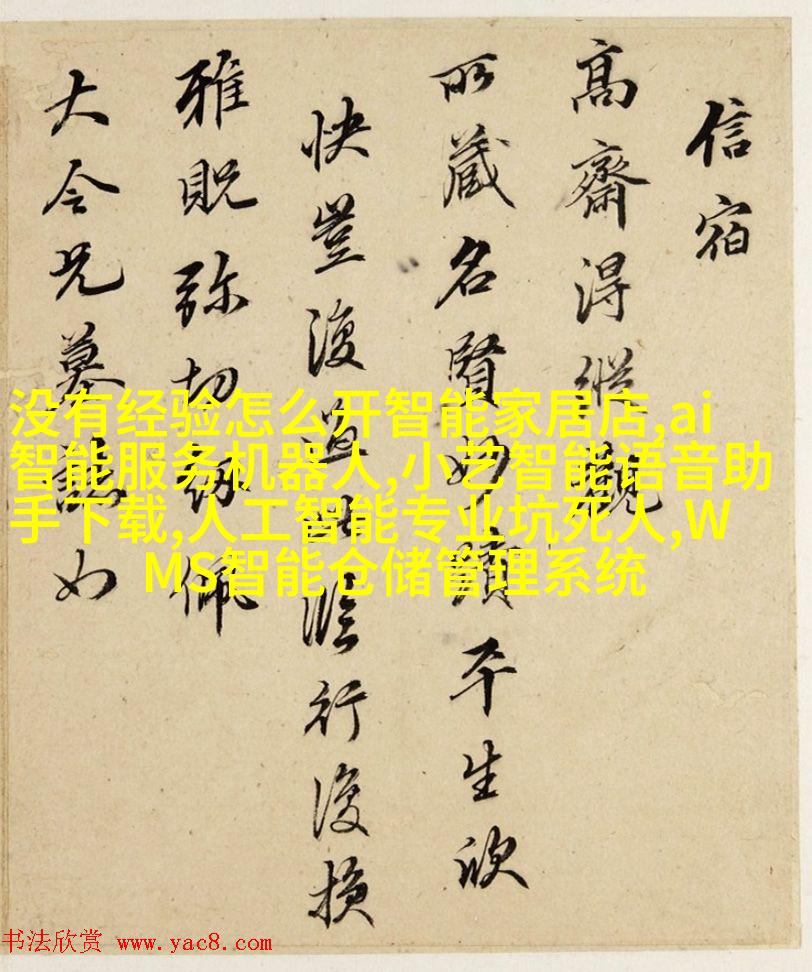 信宿
高齋得縱觀
所藏名賢妙蹟平生欣
快豈復過此臨行復損
雅貺弥切紉佩
大令兄墓誌如
没有经验怎么开智能家居店,ai
智能服务机器人,小艺智能语音助
手下载,人工智能专业坑死人,W
MS智能仓储管理系统
书法欣赏 www.yac8.com